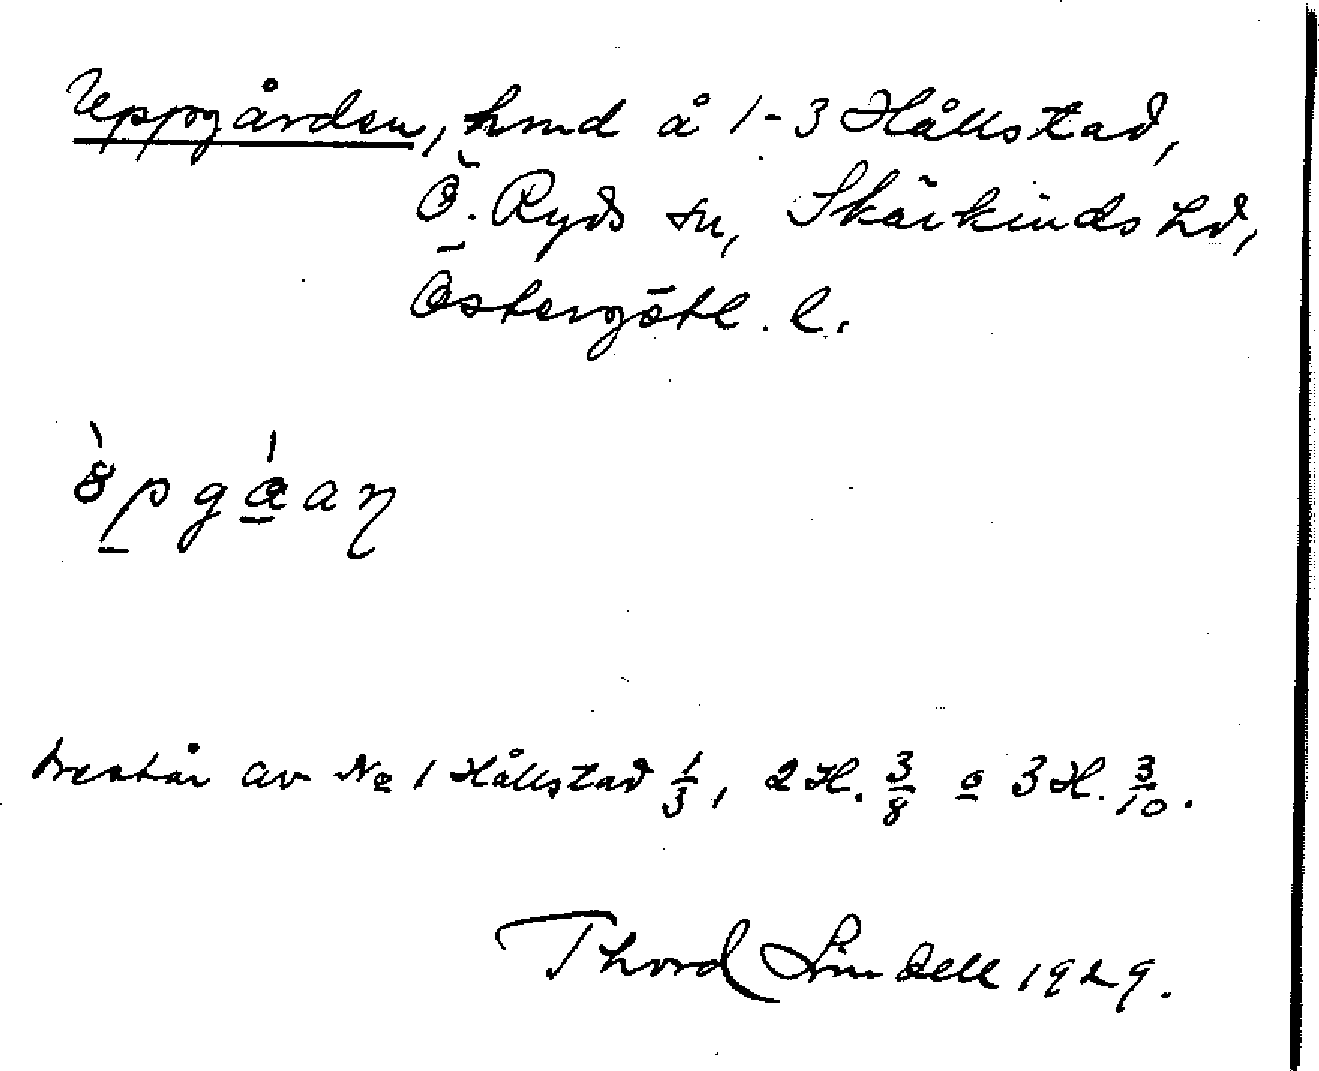 Uppgården, hmd å 1-3 Hållstad,
Ö. Ryds sn, Skärkinds hd,
Östergötl. l.
Består av No 1 Hållstad 1/3, 2 H. 3/8 o 3 H. 3/10.
Thord Lindell 1929.